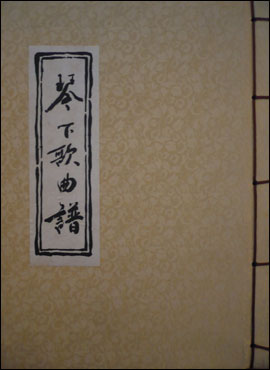 琴下歌曲譜